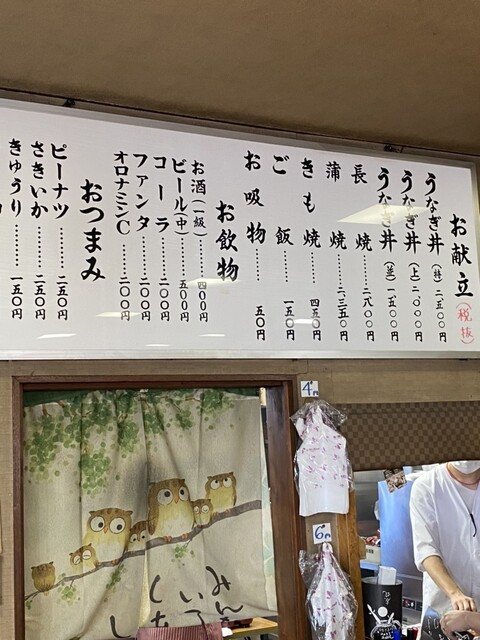 お献立(税抜)
うなぎ丼(特)二五〇〇円
うなぎ丼(上)二〇〇〇円
うなぎ丼(並)一五〇〇円
長焼二八〇〇円
蒲焼二三五〇円
きも焼四五〇円
ご飯一五〇円
お吸物五〇円
お飲物
お酒(一級)四〇〇円
ビール(中)五〇〇円
コーラ二〇〇円
ファンタ二〇〇円
オロナミンC二〇〇円
おつまみ
ピーナツ二五〇円
さきいか二五〇円
きゅうり一五〇円
4p
6p